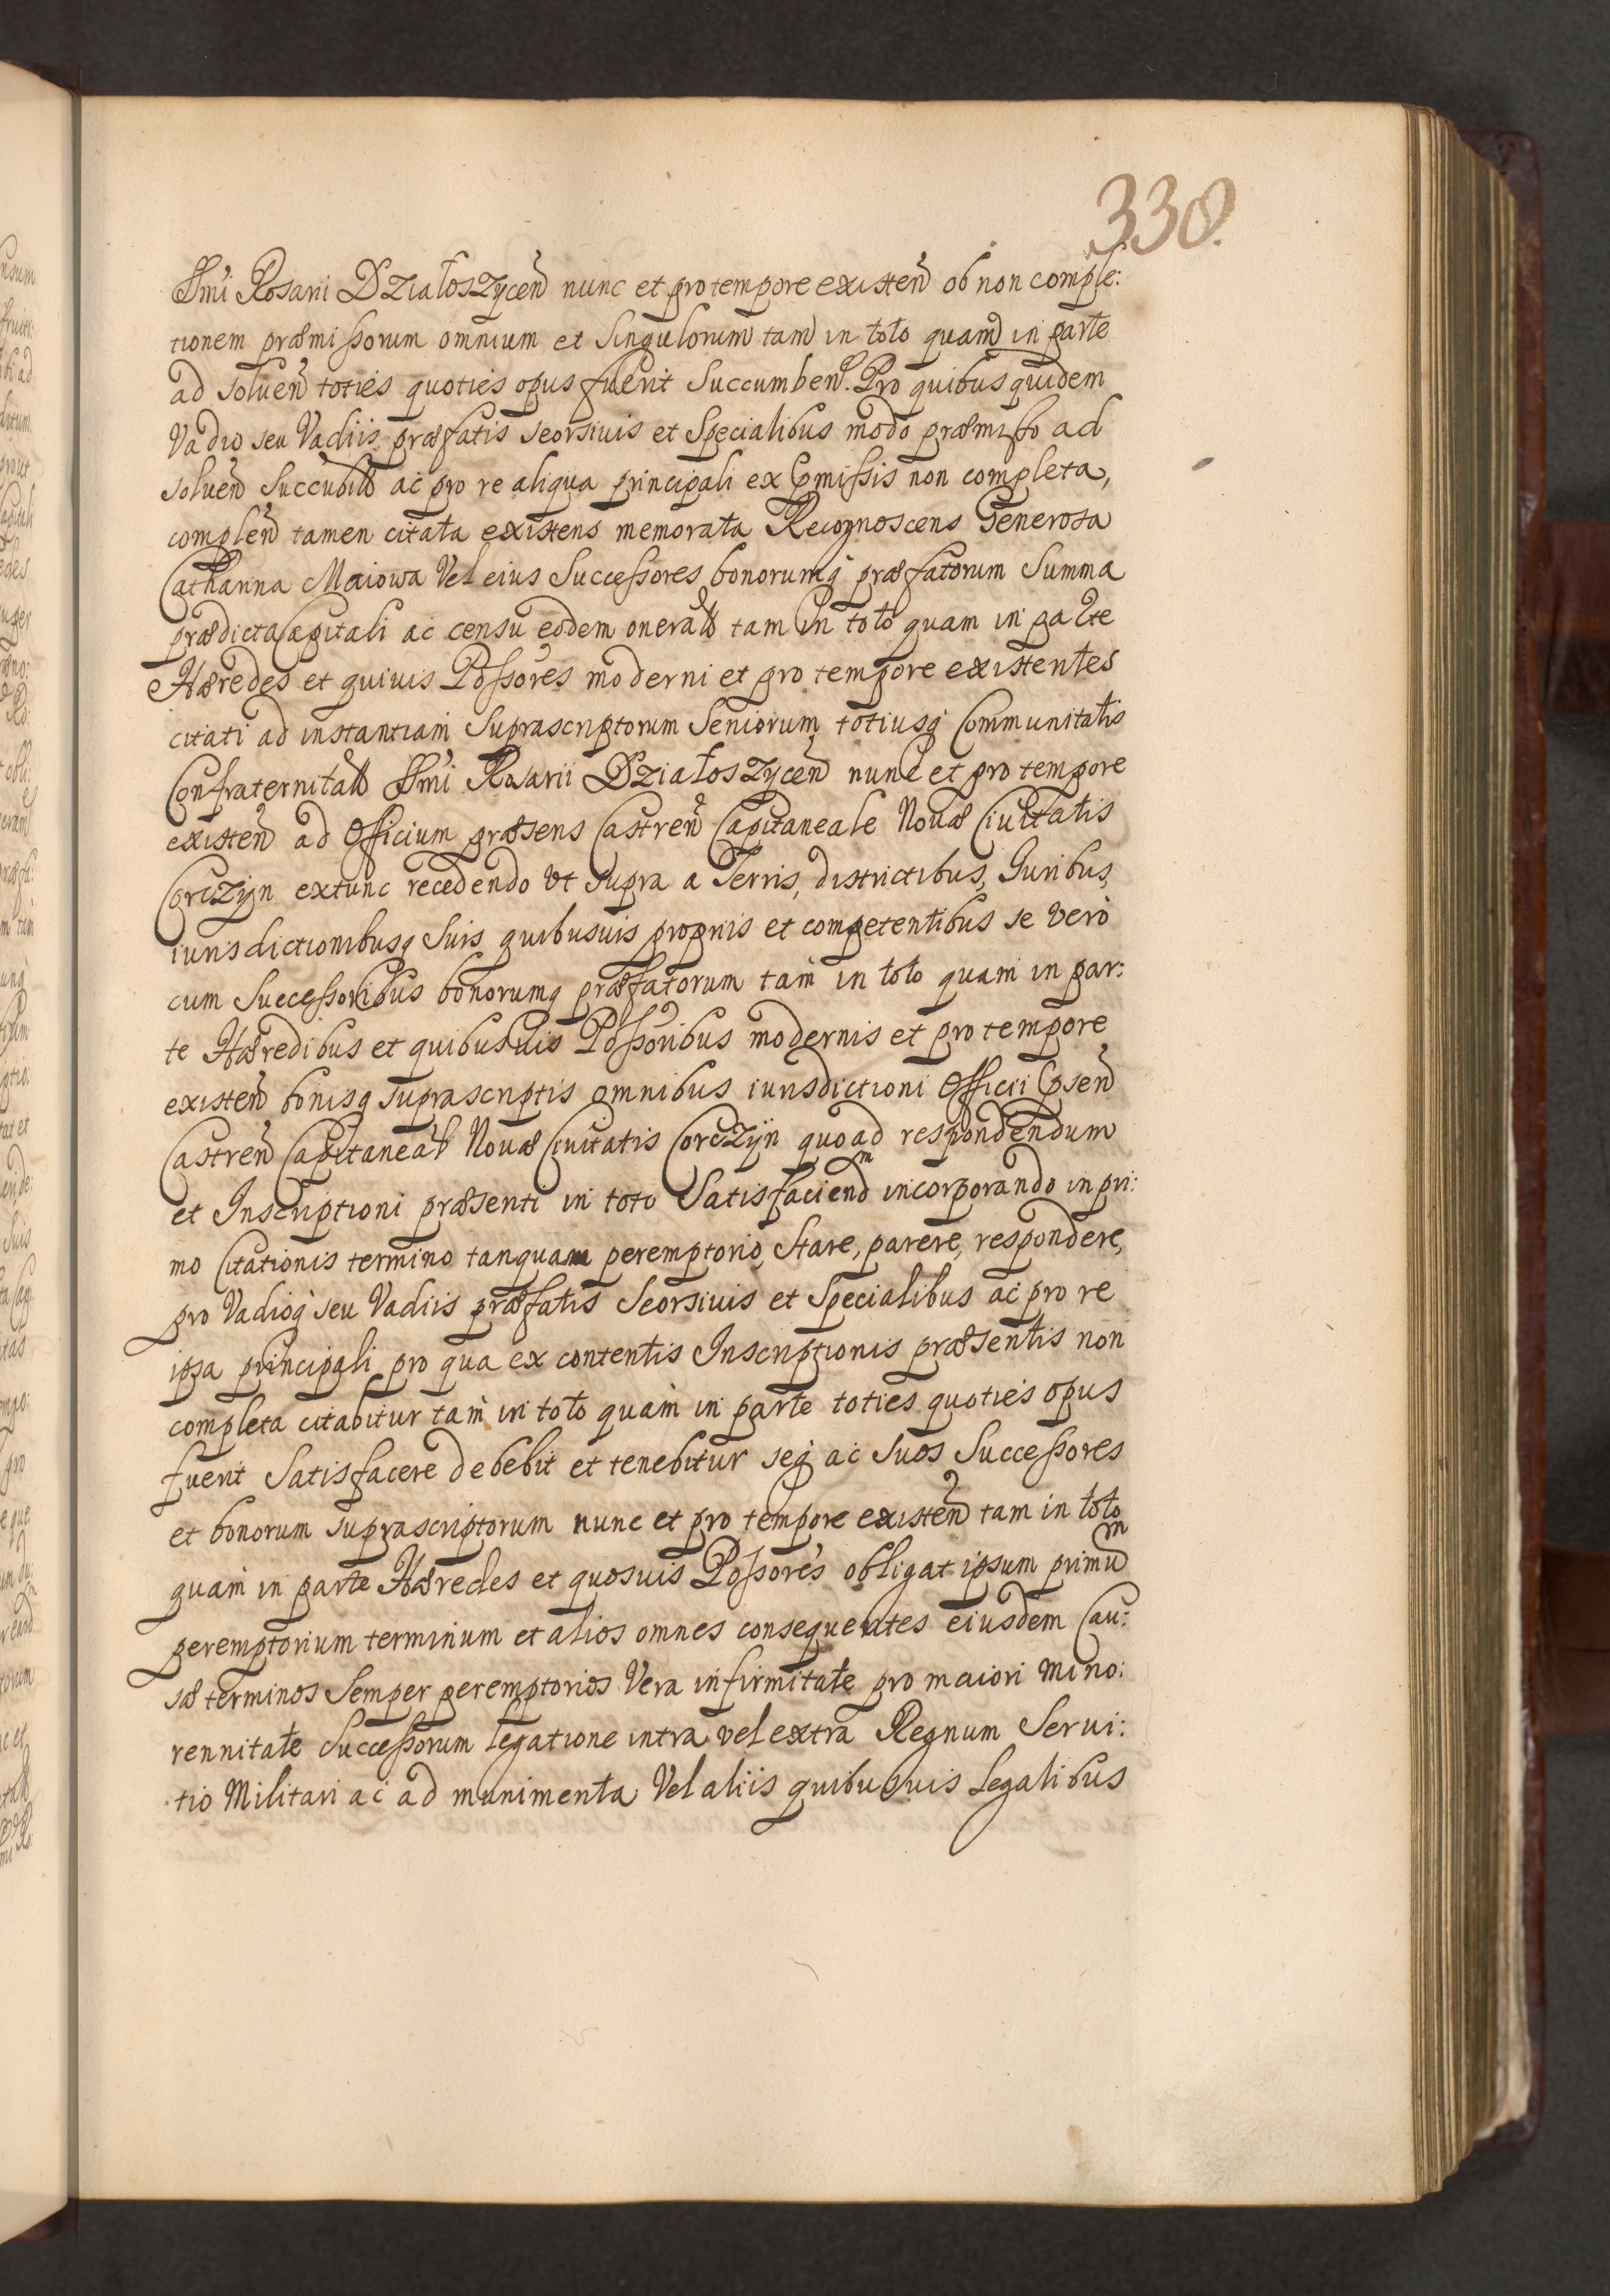 338.
SSmi Rosarii Działoszycen̄ nunc et pro tempore existen̄ ob non comple:
tionem præmissorum omnium et singulorum tam in toto quam in parte
ad soluen̄ toties quoties opus fuerit succumben̄. Pro quibus quidem
Vadio seu Vadiis præfatis seorsiuis et Specialibus modo præmisso ad
soluen̄ succubit̄ ac pro re aliqua principali ex p̄missis non completa,
complen̄ tamen citata existens memorata Recognoscens Generosa
Catharina Maiowa Vel eius Successores, bonorumq̨ præfatorum Summa
prædicta Capitali ac censu eodem onerat̄ tam in toto quam in parte
Hæredes et quiuis Possores moderni et pro tempore existentes
citati ad instantiam suprascriptorum Seniorum totiusq̨ Communitatis
Confraternitat̄ SSmi Rosarii Działoszycen̄ nunc et pro tempore
existen̄ ad Officium præsens Castren̄ Capitaneale Nouæ Ciuitatis
Corczyn extunc recedendo vt supra a Terris, districtibus, Iuribus,
iurisdictionibusq̨ suis quibusuis propriis et competentibus se verò
cum Successoribus bonorumq̨ præfatorum tam in toto quam in par:
te Hæredibus et quibusuis Possoribus modernis et pro tempore
existen̄ bonisq̨ suprascriptis omnibus iurisdictioni Officii p̄sen̄
Castren̄ Capitaneal̄ Nouæ Ciuitatis Corczyn quoad respondendum
et Inscriptioni præsenti in toto Satisfaciendᵐ incorporando in pri:
mo Citationis termino tanquam peremptorio, Stare, parere, respondere,
pro Vadioq̨ seu Vadiis præfatis Seorsiuis et Specialibus ac pro re
ipsa principali pro qua ex contentis Inscriptionis præsentis non
completa citabitur tam in toto quam in parte toties quoties opus
fuerit Satisfacere debebit et tenebitur seq̨ ac suos Successores
et bonorum suprascriptorum nunc et pro tempore existen̄ tam in toto
quam in parte Hæredes et quosuis Possores obligat ipsum primūᵐ
peremptorium terminum et alios omnes consequentes eiusdem Cau:
sæ terminos Semper peremptorios Vera infirmitate pro maiori mino:
rennitate Successorum legatione intra vel extra Regnum Serui:
tio Militari ac ad munimenta Vel aliis quibusuis Legalibus